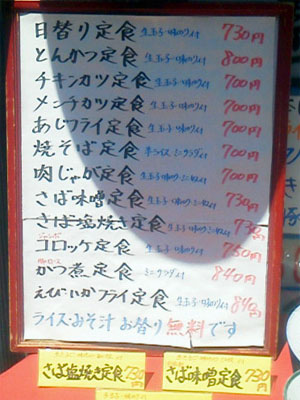 日替り定食 生玉子・味のり付 730円
とんかつ定食 生玉子・味のり付 800円
チキンカツ定食 生玉子・味のり付 700円
メンチカツ定食 生玉子・味のり付 700円
あじフライ定食 生玉子・味のり付 700円
焼そば定食 半ライス・ミニサラダ付 700円
肉じゃが定食 生玉子・味のり 700円
さば味噌定食 生玉子・味のり 730円
さば塩焼き定食 生玉子・味のり 730円
コロッケ定食 生玉子・味のり付 750円
かつ煮定食 ミニサラダ付 840円
えび・いかフライ定食 生玉子・味のり付 840円
ライス・みそ汁 お替り無料です
さば塩焼き定食 730円
さば味噌定食 730円